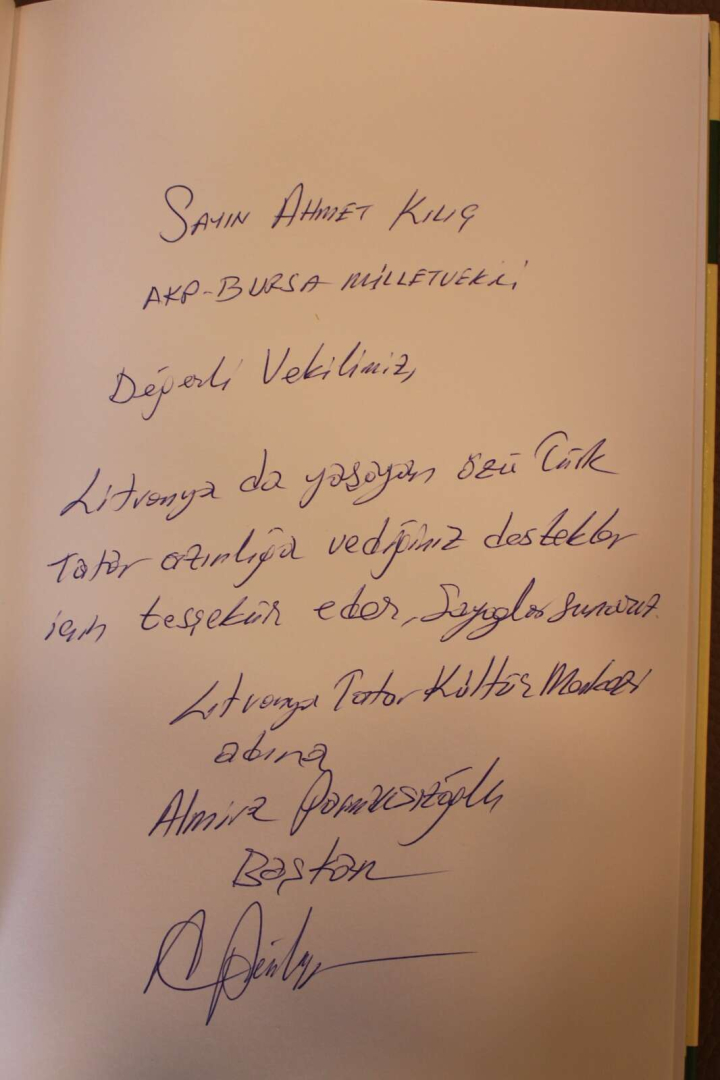 SAYIN AHMET KILIÇ
AKP-BURSA MİLLETVEKİLİ
Değerli Vekilimiz,
Litvanya da yaşayan özü Türk
Tatar azınlığa vediğiniz destekler
için teşşekür eder, Saygılar Sunarız.
Litvanya Tatar Kültür Merkezi
adına
Almira
Başkan